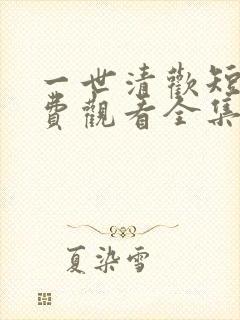 一世清歡短
費觀看全集
夏染雪